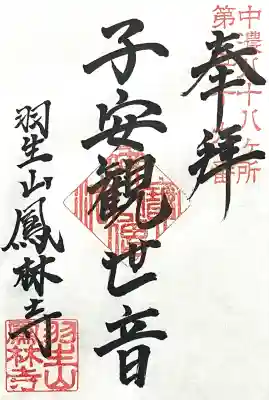 奉拝
中濃八十八ヶ所
子安観世音
羽生山鳳林寺
羽生山
鳳林寺